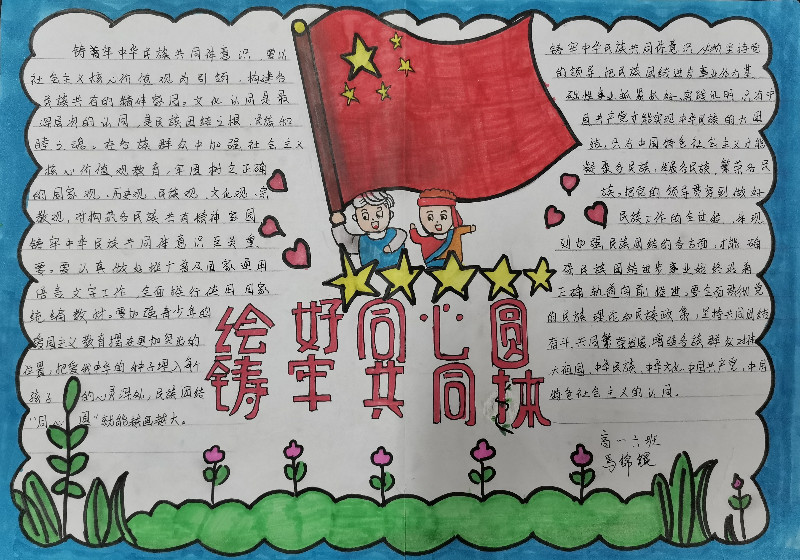 铸牢中华民族共同体意识，要以
社会主义核心价值观为引领，构建各
民族共有的精神家园。文化认同是最
深层次的认同，是民族团结之根、民族和
睦之魂。在各族群众中加强社会主义
核心价值观教育，牢固树立正确
的国家观、历史观、民族观、文化观、宗
教观，对构筑各民族共有精神家园
铸牢中华民族共同体意识至关重
要。要认真做好推广普及国家通用
语言文字工作，全面推行使用国家
统编教材。要加强青少年的
爱国主义教育摆在更加突出的
位置，把爱我中华的种子埋入每个
孩子的心灵深处，民族团结
“同心圆”就能越画越大。
绘好同心圆
铸牢共同体
铸牢中华民族共同体意识，必须坚持党
的领导，把民族团结进步事业作为基
础性事业抓紧抓好。实践证明，只有中
国共产党才能实现中华民族的大团
结，只有中国特色社会主义才能
凝聚各民族、发展各民族、繁荣各民
族。把党的领导贯穿到做好
民族工作的全过程，体现
到加强民族团结的各方面，才能确
保民族团结进步事业始终沿着
正确轨道向前推进。要全面贯彻党
的民族理论和民族政策，坚持共同团结
奋斗、共同繁荣发展，增强各族群众对伟
大祖国、中华民族、中华文化、中国共产党、中国
特色社会主义的认同。
高一六班
马锦